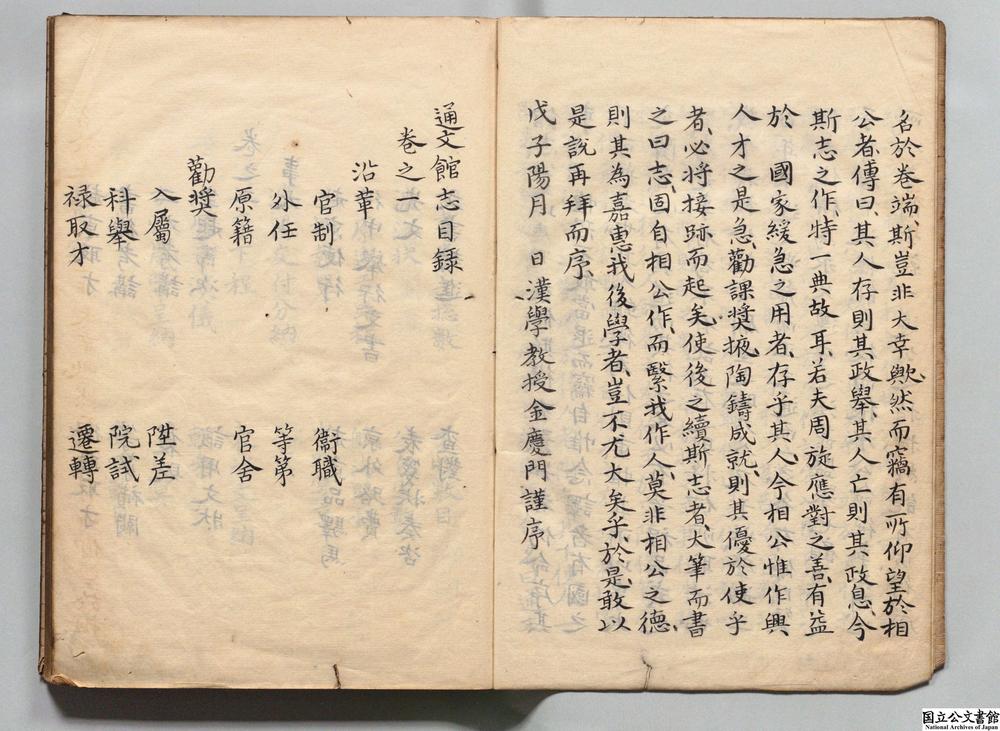 名於卷端、斯豈非大幸歟、然而竊有所仰望於相
公者、傳曰、其人存則其政舉、其人亡則其政息、今
斯志之作、特一典故耳、若夫周旋應對之善、有益
於　國家緩急之用者、存乎其人、今相公惟作興
人才之是急、勸課奬掖、陶鑄成就、則其優於使乎
者、必將接跡而起矣、使後之續斯志者、大筆而書
之曰志、固自相公作、而繄我作人、莫非相公之德、
則其為嘉惠我後學者、豈不尤大矣乎、於是、敢以
是說再拜而序、
戊子陽月　日　漢學教授金慶門謹序
通文館志目録
卷之一
沿革
官制　衙職
外任　等第
原籍　官舍
勸奬
入屬　陞差
科舉　院試
禄取才　遷轉
国立公文書館
National Archives of Japan